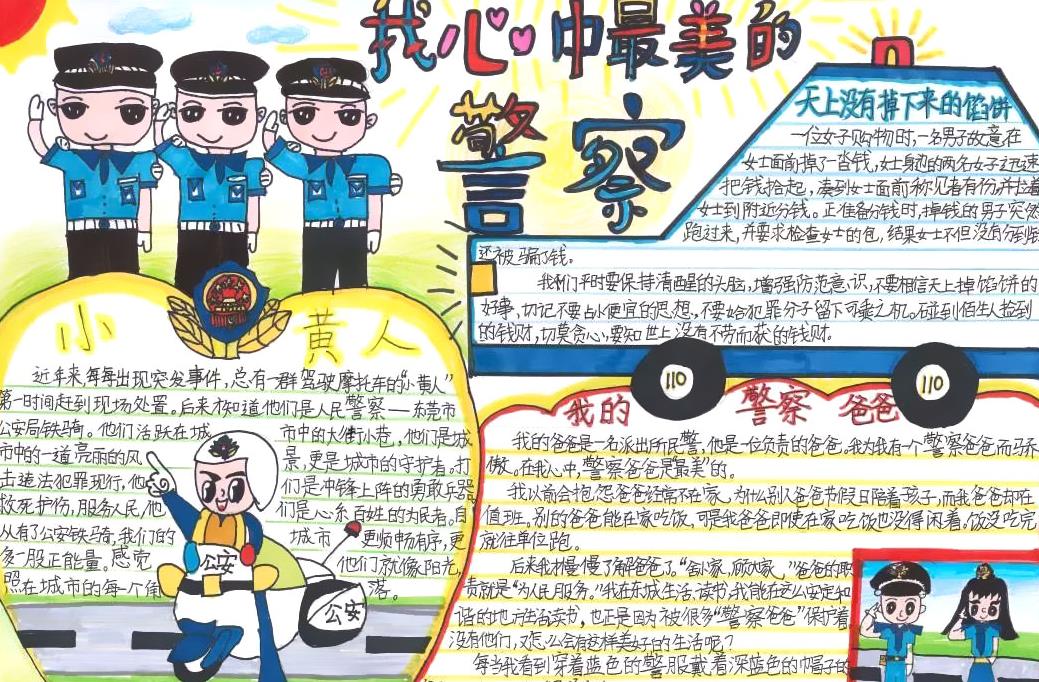 我心中最美的
警察
天上没有掉下来的馅饼
一位女子购物时,一名男子故意在
女士面前掉了一沓钱,女士身边的两名女子迅速
把钱拾起,凑到女士面前称见者有份,并拉着
女士到附近分钱。正准备分钱时,掉钱的男子突然
跑过来,并要求检查女士的包,结果女士不但没有分到钱
还被骗了钱。
我们平时要保持清醒的头脑,增强防范意识,不要相信天上掉馅饼的
好事,切记不要占小便宜的思想,不要给犯罪分子留下可乘之机。碰到陌生人捡到
的钱财,切莫贪心,要知世上没有不劳而获的钱财。
110
110
小黄人
近年来,每每出现突发事件,总有一群驾驶摩托车的“小黄人”
第一时间赶到现场处置。后来才知道他们是人民警察——东莞市
公安局铁骑。他们活跃在城市中的大街小巷,他们是城
市中的一道亮丽的风景,更是城市的守护者。打
击违法犯罪现行,他们是冲锋上阵的勇敢
救死护伤,服务人民,他们是心系百姓的为民者。自
从有了公安铁骑,我们的城市更顺畅有序,更
多一股正能量。感觉他们就像阳光,
照在城市的每个角落。
公安
公安
我的警察爸爸
我的爸爸是一名派出所民警,他是一位负责的爸爸。我为我有一个警察爸爸而骄
傲。在我心中,警察爸爸是最美的。
我以前会抱怨爸爸经常不在家,为什么别人爸爸节假日陪着孩子,而我爸爸却在
值班。别的爸爸能在家吃饭,可是我爸爸即使在家吃饭也没得闲着,饭没吃完
就往单位跑。
后来我才慢慢了解爸爸了。“舍小家,顾大家,”爸爸的职
责就是“为人民服务。”我在东城生活、读书,我能在这么安定和
谐的地方生活读书,也正是因为被很多“警察爸爸”保护着
没有他们,又怎么会有这样美好的生活呢?
每当我看到穿着蓝色的警服戴着深蓝色的帽子的